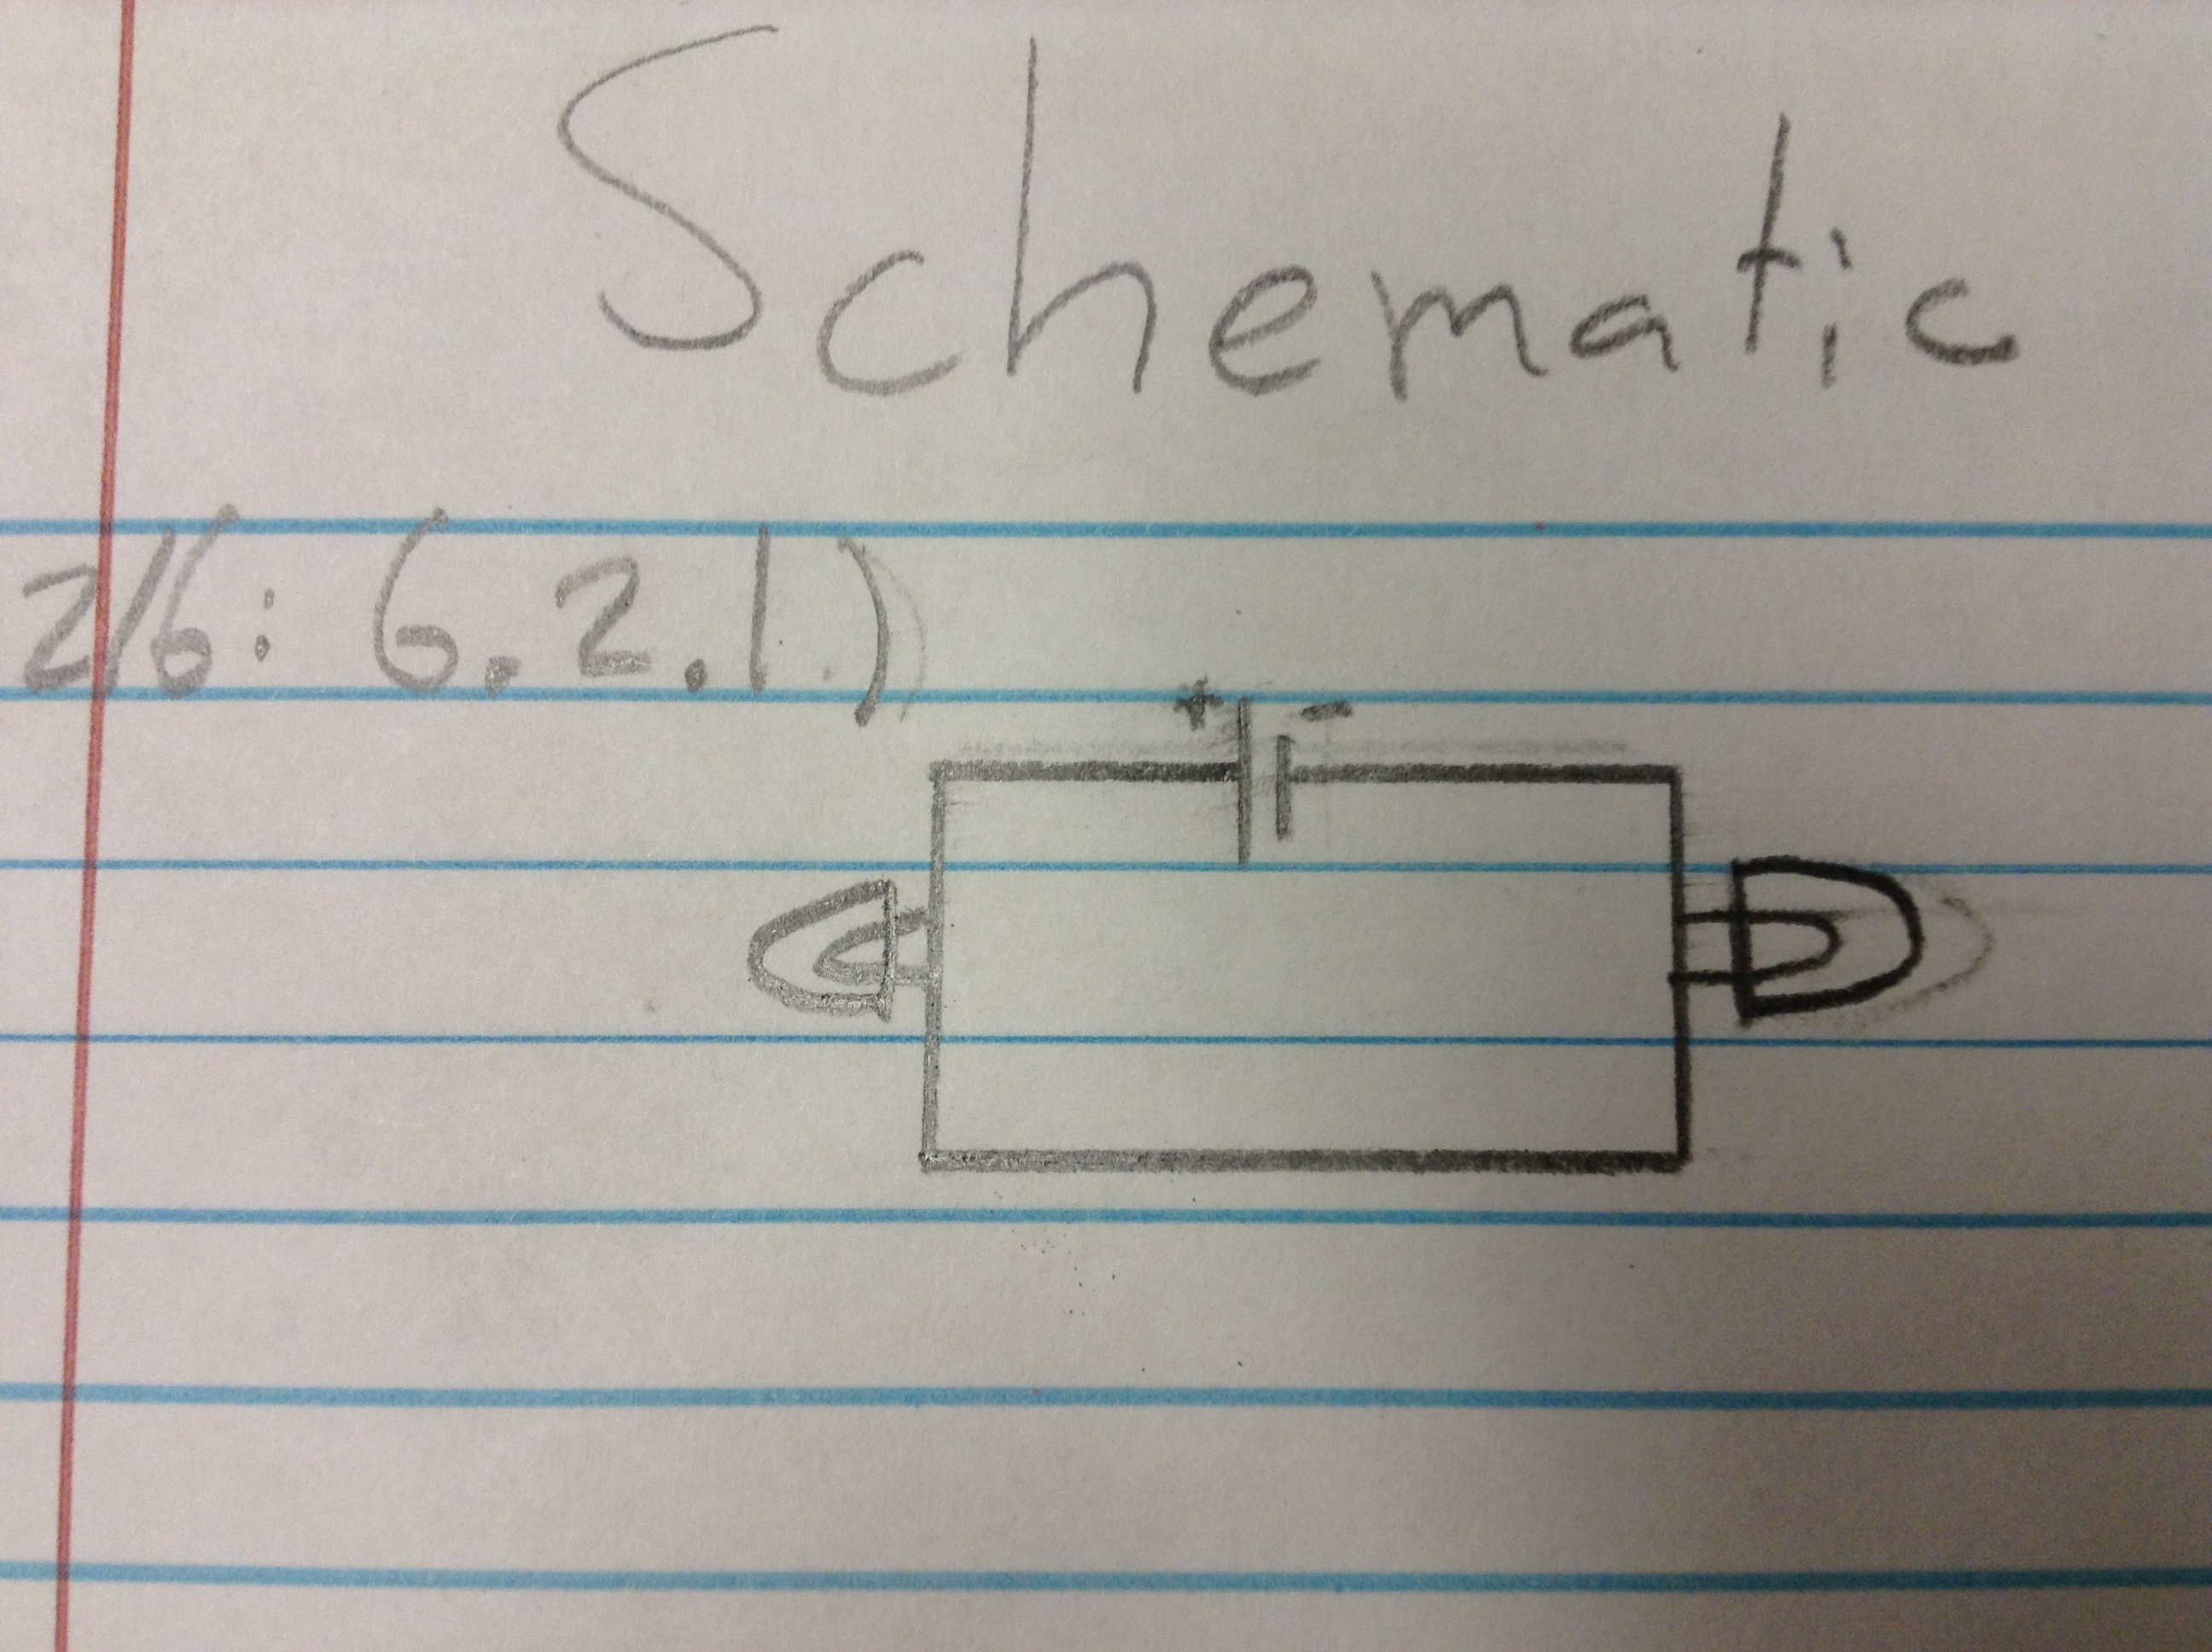 Schematic
2/6: 6.2.1)
+ -